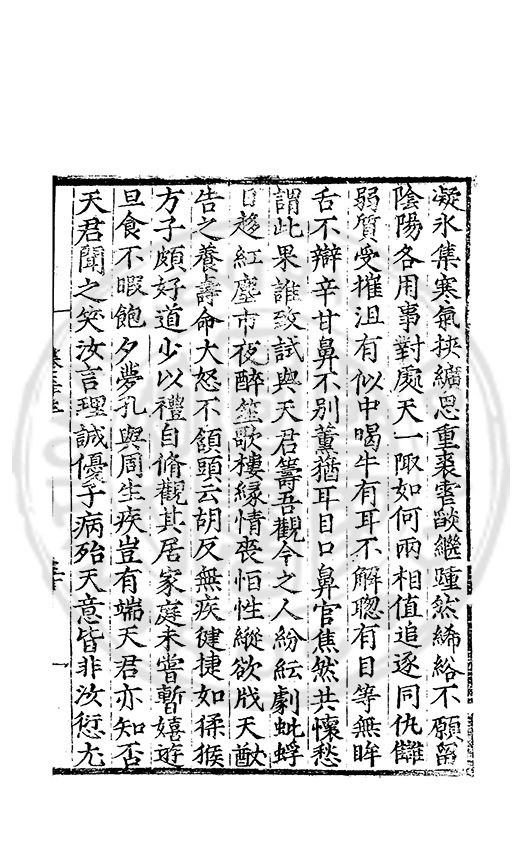 凝氷集寒氣挾纊恩重裘雪燄繼踵然絺綌不願留
陰陽各用事對處天一陬如何兩相值追逐同仇讎
弱質受摧沮有似中喝牛有耳不解聦有目等無眸
舌不辯辛甘鼻不别薰蕕耳目口鼻官焦然共懷愁
謂此果誰致試與天君籌吾觀今之人紛紜劇蚍蜉
日趍紅塵市夜醉笙歌樓縁情喪恒性縱欲戕天猷
告之養壽命大怒不頷頭云胡反無疾徤捷如猱猴
方子頗好道少以禮自脩觀其居家庭未甞暫嬉遊
旦食不暇飽夕夢孔與周生疾豈有端天君亦知否
天君聞之笑汝言理誠優子病殆天意皆非汝愆尤